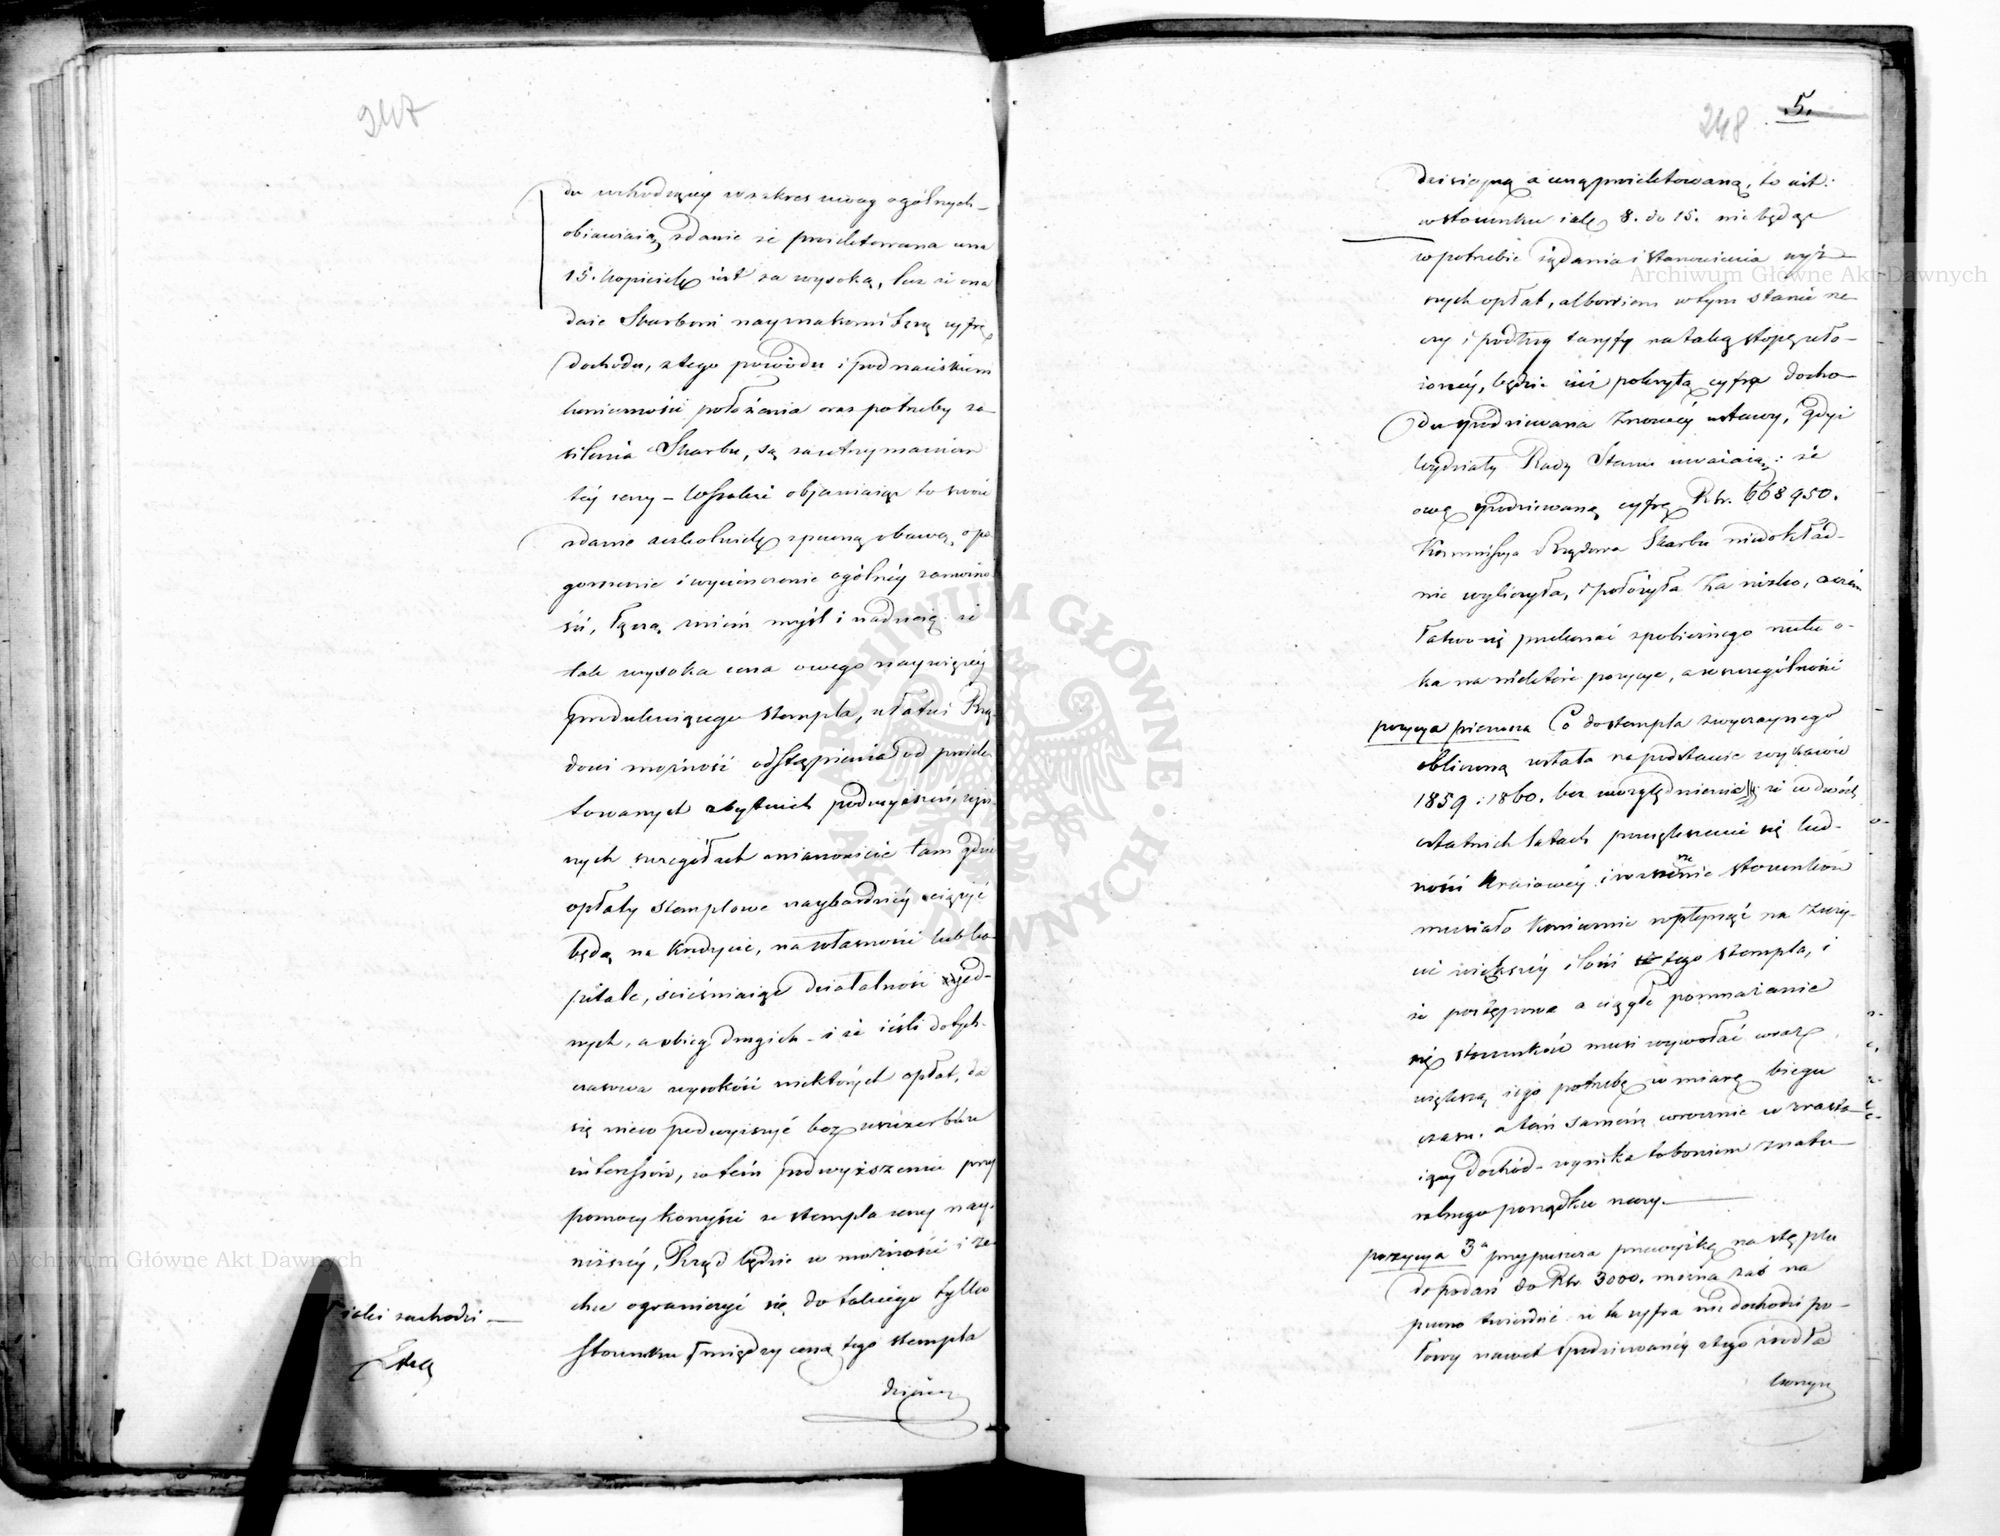 247
du wchodzący w zakres uwag ogólnych
obiawiaią zdanie że proiektowana cena
15. kopieiek iest za wysoką, lecz że ona
daie Skarbowi nayznakomitszą cyfrę
dochodu, z tego powodu i pod naciskiem
konieczności położenia oraz potrzeby za-
silenia Skarbu, są za utrzymaniem
téj ceny – Wszakże objawiaiąc to swoie
zdanie aczkolwiek z pewną obawą, o po-
gorszenie i wycieńczenie ogólnéj zamożno-
ści, łączą z niem myśl i nadzieię że
tak wysoka cena owego naywięcéj
produkuiącego stempla, ułatwi Rzą-
dowi możność odstąpienia od proiek-
towanych zbytnich podwyższeń, w in-
nych szczegółach a mianowicie tam gdzie
opłaty stemplowe naybardziéj ciążyć
będą na kredycie, na własności lub ka-
pitale, ścieśniaiąc działalność jed-
nych, a obieg drugich – i że ieśli dotych-
czasowa wysokość niektórych opłat, da
się nieco podwyższyć bez uszczerbku
interessów, w tém podwyższeniu przy
pomocy korzyści ze stempla ceny nay-
niższéj, Rząd będzie w możności i ze-
chce ograniczyć się do takiego tylko
stosunku między ceną tego stempla
iaki zachodzi –
dzisiey
248 5.
dzisieyszą a ceną proiektowaną, to iest:
w stosunku iak 8. do 15. nie będąc
w potrzebie żądania i stanowienia wyż-
szych opłat, albowiem w tym stanie rze-
czy i podług taryfy na taką stopę uło-
żonéj, będzie iuż pokrytą cyfra docho-
du spodziewana z nowéj ustawy, gdyż
Wydziały Rady Stanu uważaią: że
ową spodziewaną cyfrę Rsr. 668950.
Kommissya Rządowa Skarbu niedokład-
nie wyliczyła, i położyła za nizko, o czém
łatwo się przekonać z pobieżnego rzutu o-
ka na niektóre pozycye, a w szczególności
pozycya pierwsza Co do stempla zwyczaynego
obliczoną została na podstawie wykazów
1859 i 1860. bez uwzględnienia, że w dwóch
ostatnich latach powiększenie się lud-
ności kraiowéj i wzmożenie stosunków
musiało koniecznie wpłynąć na zuży-
cie większéj ilości tego stempla, i
że postępowe a ciągłe pomnażanie
się stosunków musi wywołać coraz
większą iego potrzebę w miarę biegu
czasu, a tém samém corocznie wzrasta-
iący dochód – wynika to bowiem z natu-
ralnego porządku rzeczy. –
pozycya 3a przypuszcza przewyżkę na stęplu
do podań do Rsr. 3000. można zaś na
pewno twierdzić że ta cyfra nie dochodzi po-
łowy nawet spodziewanéj z tego źródła
korzyści
Archiwum Główne Akt Dawnych
Archiwum Główne Akt Dawnych
ARCHIWUM GŁÓWNE AKT DAWNYCH